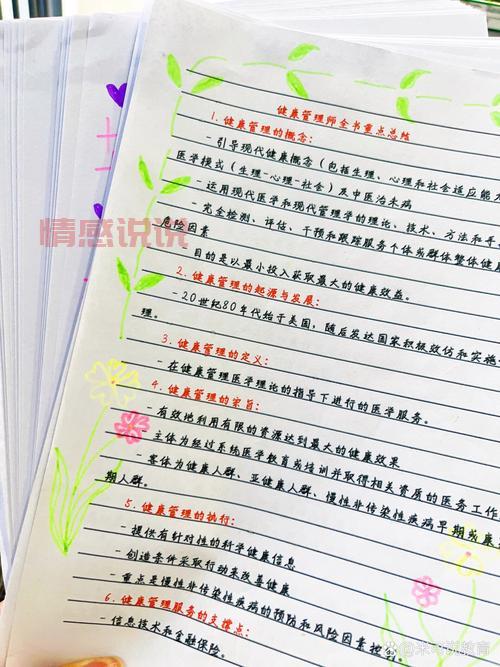 健康管理师全书重点总结
1. 健康管理的概念:
- 引导现代健康概念（包括生理、心理和社会适应能
医学模式（生理-心理-社会）及中医治未病
- 运用现代医学和现代管理学的理论、技术、方法和
- 完全检测、评估、干预和跟踪服务个体或群体整体健
危险因素
- 目的是以最小投入获取最大的健康效益。
2. 健康管理的起源与发展:
- 20世纪80年代始于美国，随后发达国家积极效仿和实施
理。
3. 健康管理的定义:
- 在健康管理医学理论的指导下进行的医学服务。
4. 健康管理的宗旨:
- 有效地利用有限的资源达到最大的健康效果
- 主体为经过系统医学教育或培训并取得相关资质的医务工作
- 客体为健康人群、亚健康人群、慢性非传染性疾病早期或康
期人群。
5. 健康管理的执行:
- 提供有针对性的科学健康信息
- 创造条件采取行动来改善健康
- 重点是慢性非传染性疾病的预防和风险因素控
6. 健康管理服务的支撑点:
- 信息技术和金融保险。
十
情感说说